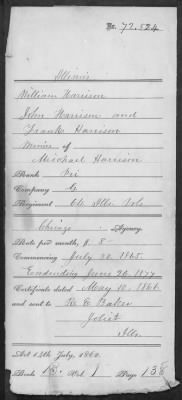 No. 72,524
Illinois
William Harrison
John Harrison and
Frank Harrison
Minors of
Michael Harrison
Rank Pri
Company G
Regiment 66 Ills Vols
Chicago Agency
Rate per month, $ 8
Commencing July 20, 1865
Ending June 20, 1877
Certificate dated May 10, 1866
and sent to R. E. Baker
Joliet
Ills
Act 14th July, 1862.
Book Vol 1 Page 138